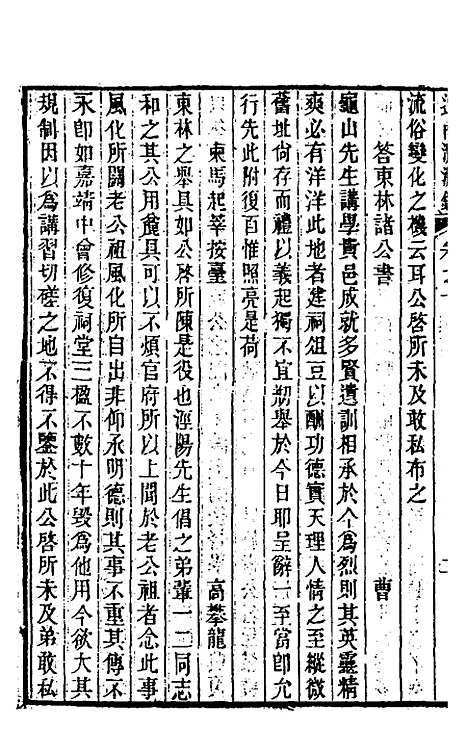 流俗變化之機云耳公啓所未及敢私布之
答東林諸公書
曹
龜山先生講學貴邑成就多賢遺訓相承於今爲烈則其英靈精
爽必有洋洋此地者建祠俎豆以酬功德實天理人情之至縱微
舊址尙存而禮以義起獨不宜剏舉於今日耶呈辭一至當卽允
行先此附復百惟照亮是荷
柬馬起莘按臺
高攀龍
東林之舉具如公啓所陳是役也涇陽先生倡之弟輩一二同志
和之其公用舊具可以不煩官府所以上聞於老公祖者念此事
風化所關老公祖風化所自出非仰承明德則其事不重其傳不
永卽如嘉靖中曾修復祠堂三楹不數十年毀爲他用今欲大其
規制因以爲講習切磋之地不得不鑒於此公啓所未及弟敢私